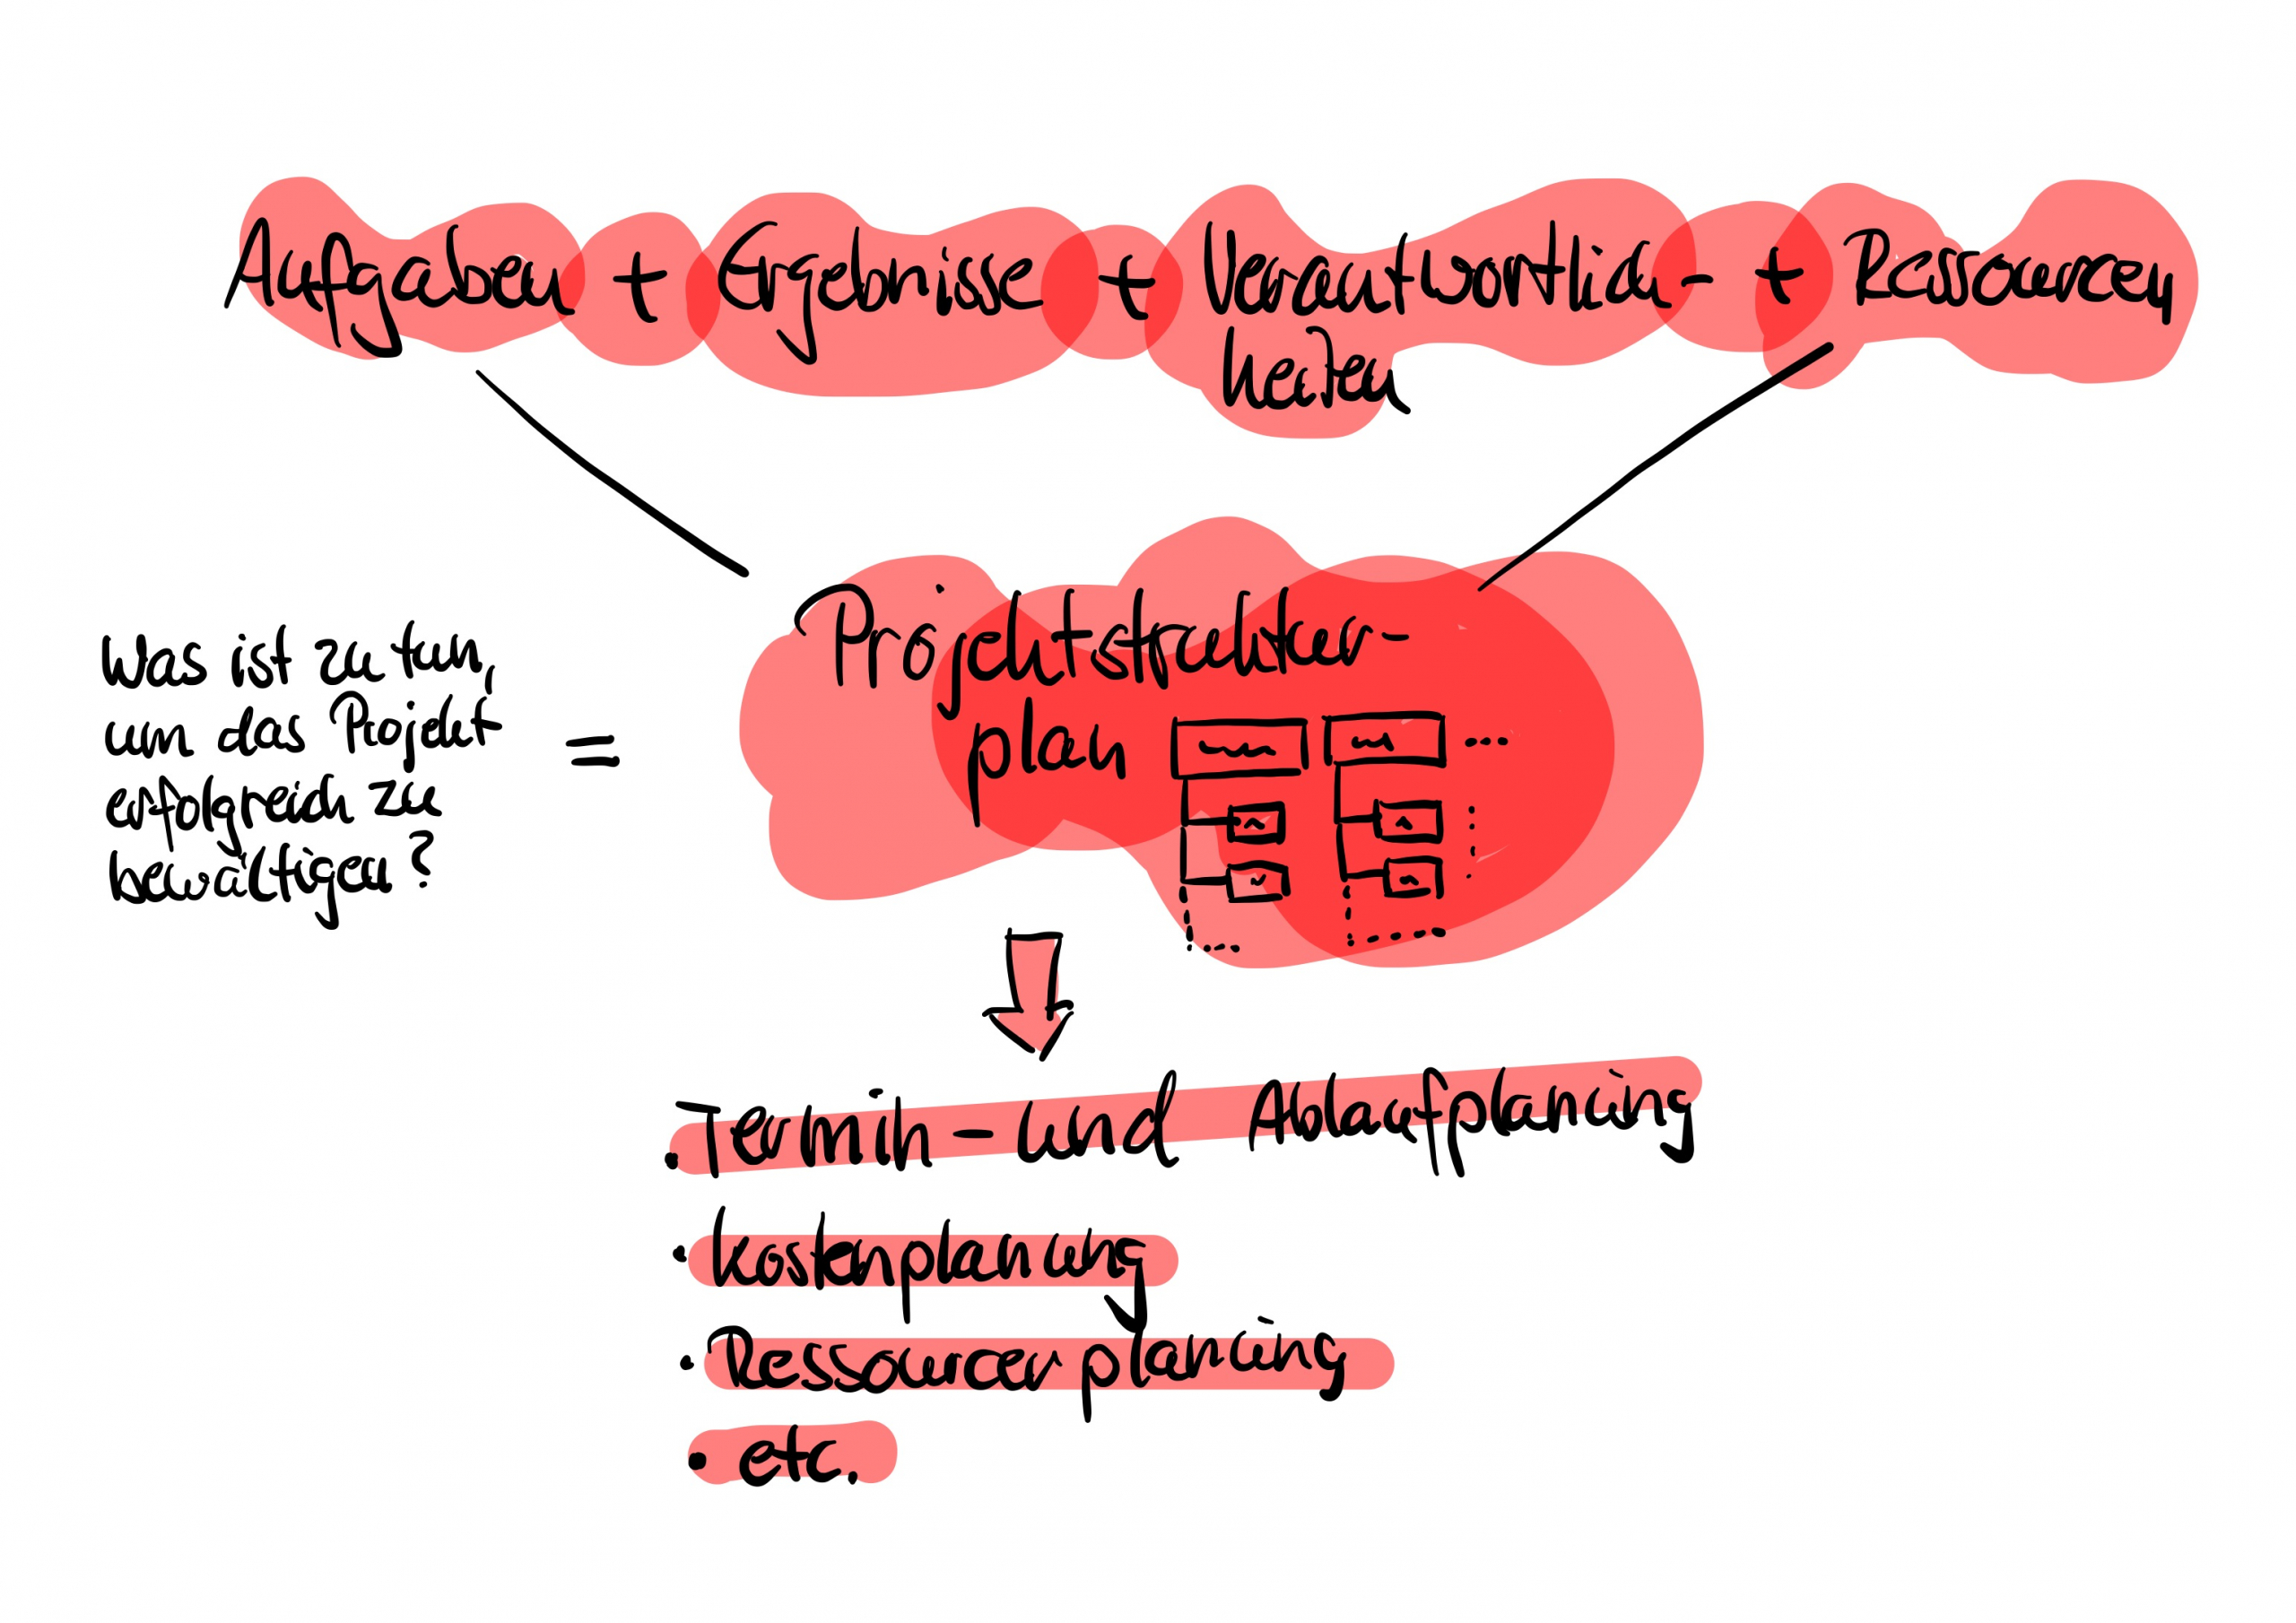 Aufgaben + Ergebnisse + Verantwortlich- + Ressourcen
keiten
Projektstruktur-
plan
Was ist zu tun,
um das Projekt
erfolgreich zu
bewältigen?
=
· Termin- und Ablaufplanung
· Kostenplanung
· Ressourcenplanung
· etc.